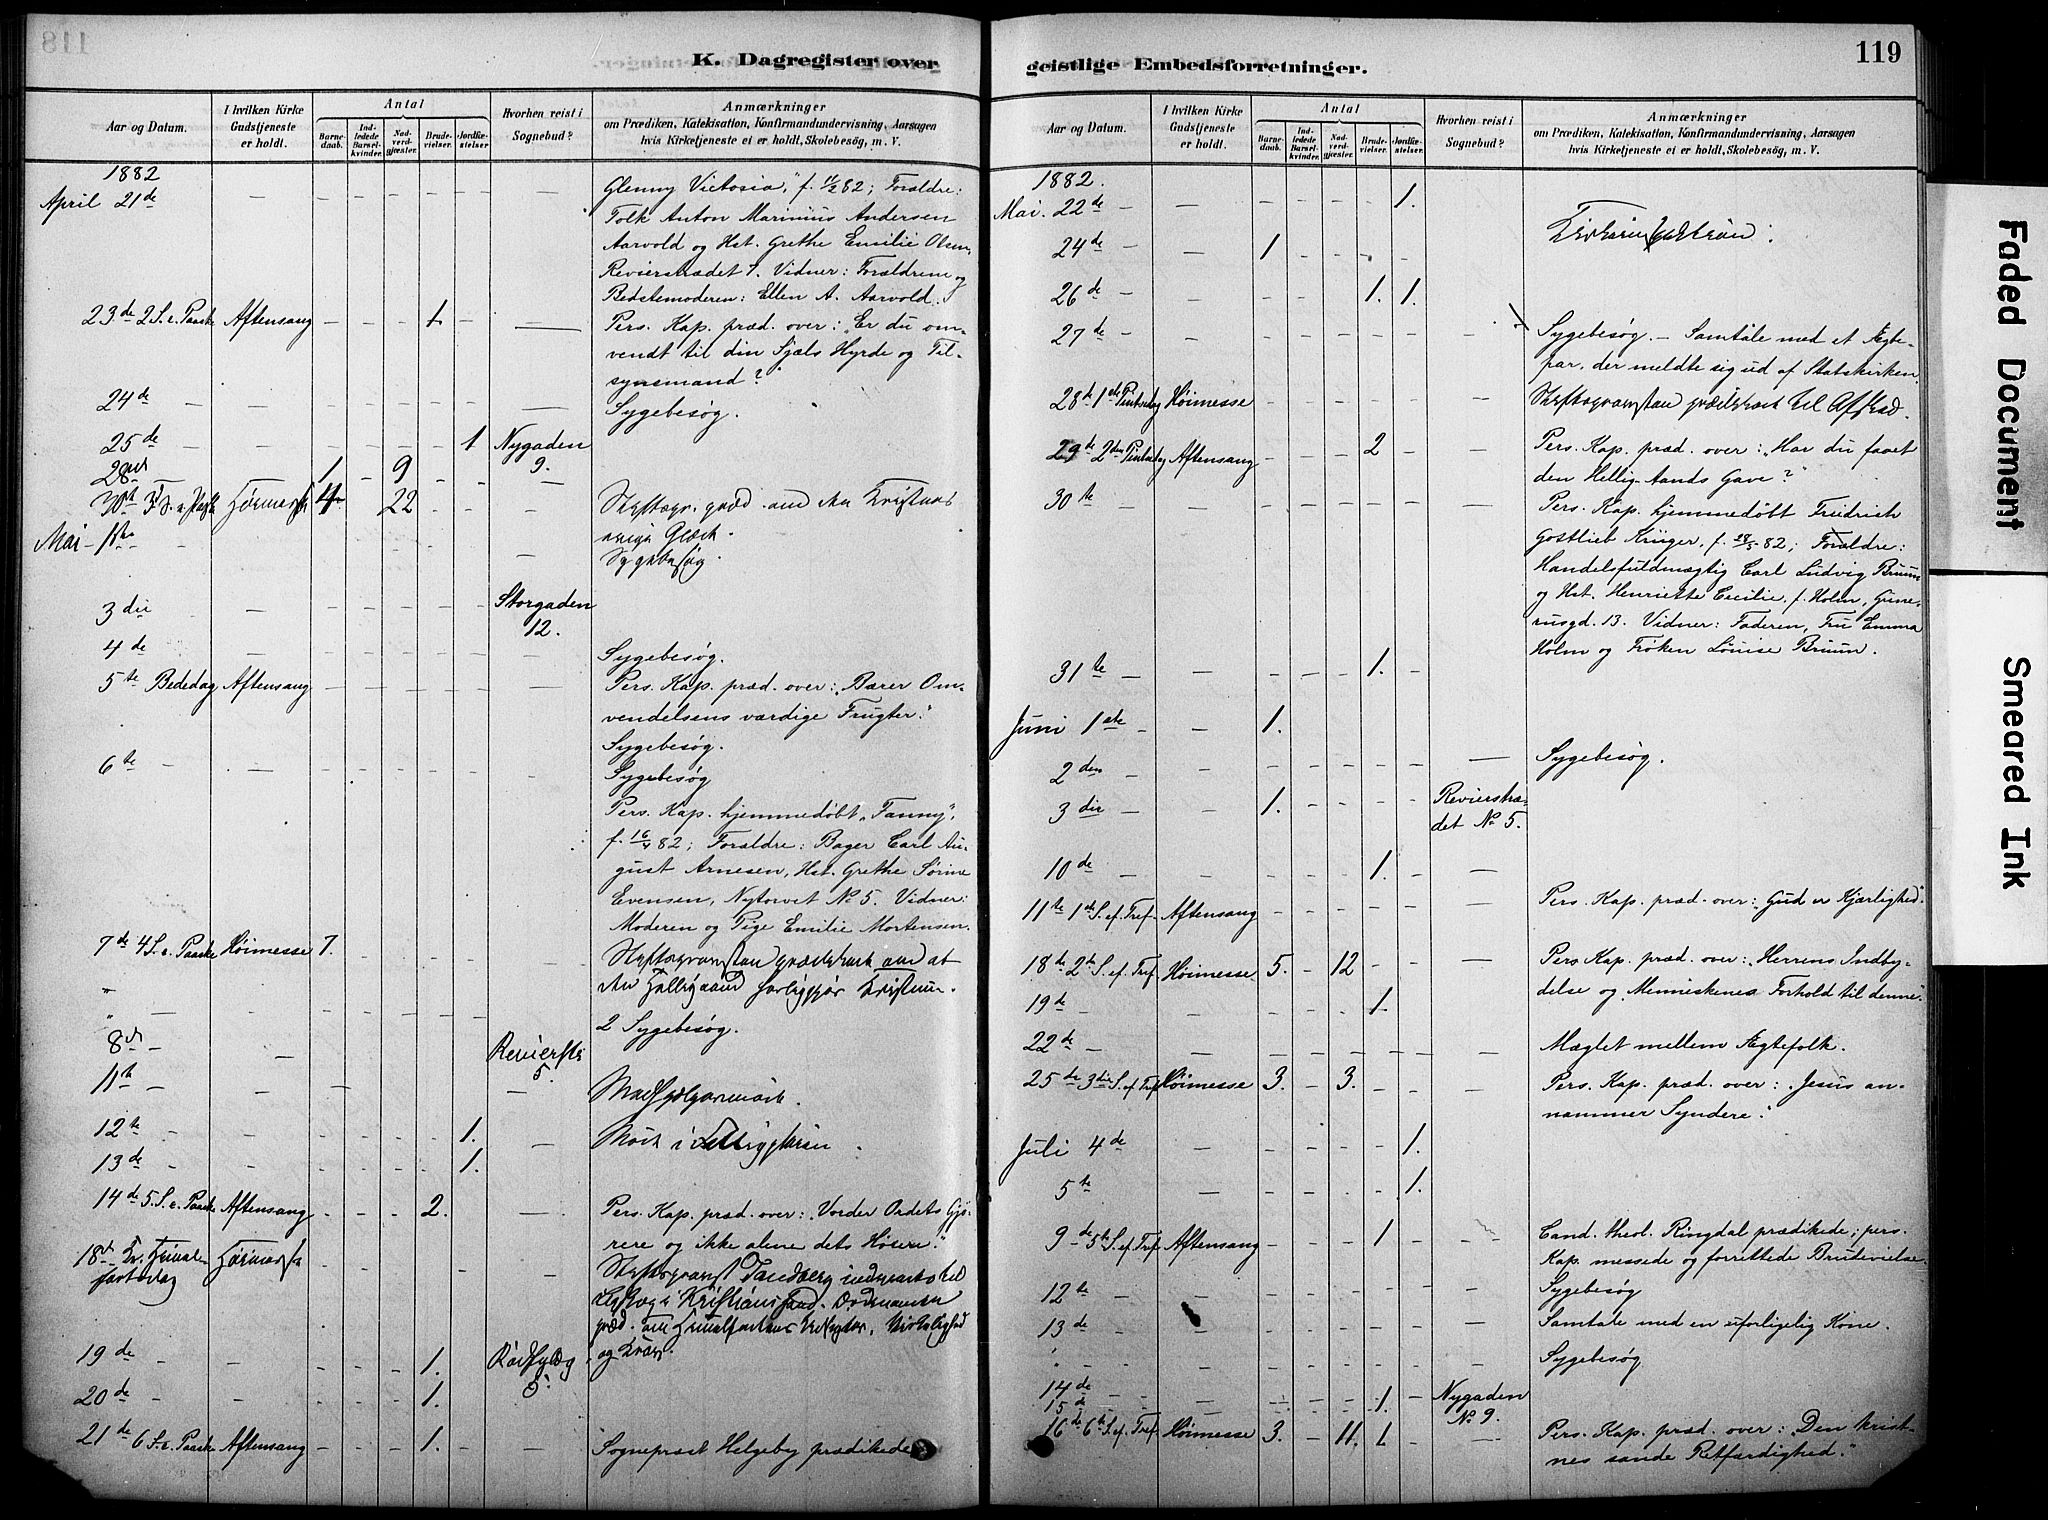 118
K. Dagregister over
Aar og Datum.
I hvilken Kirke Gudstjeneste er holdt.
Antal
Barnedaab.
Indledede Barselkvinder.
Nadverdgjæster.
Brudevielser.
Jordkastelser
Hvorhen reist i Sognebud?
Anmærkninger
om Prædiken, Katekisation, Konfirmandundervisning, Aarsagen
hvis Kirketjeneste ei er holdt, Skolebesøg, m. V.
1882
April 21de — — Glenny Victoria", f. 11/2 82; Forældre:
Folk Anton Marinius Andersen
Aarvold og Hst. Grethe Emilie Olsen,
Revierstrædet 7. Vidner: Forældrene og
Bedstemoderen: Ellen A. Aarvold.
23de 2 S. e. Paaske Aftensang - - - 1 - — Pers. Kap. præd. over: „Er du om-
vendt til din Sjæls Hyrde og Til-
synsmand?"
24de — — Sygebesøg.
25de — — 1 Nygaden
9.
28 1 - 9
30 Høimesse 4 - 22
Mai 1ste
Sygebesøg.
3die — Storgaden
12.
4de — Sygebesøg.
5te Bededag Aftensang — Pers. Kap. præd. over: „Bærer Om-
vendelsens værdige Frugter."
Sygebesøg.
6te — — Sygebesøg
Pers. Kap. hjemmedøbt „Fanny",
f. 16/4 82; Forældre: Bager Carl Au-
gust Arnesen, Hst. Grethe Sørine
Evensen, Nytorvet No 5. Vidner:
Moderen og Pige Emilie Mortensen.
7de 4 S. e. Paaske Høimesse 7.
" — 2 Sygebesøg.
8de — Revierstr.
5.
11te — —
12te — — 1.
13de - — 1.
14de 5. S. e. Paaske Aftensang - - - 2. - — Pers. Kap. præd. over: „Vorder Ordets Gjø-
rere og ikke alene dets Hørere."
18de Høimesse
Kristianssand.
19de - — 1.
20de - — 1.
21de 6 S. e. Paaske Aftensang - - - 1. - - Sogneprest Helgeby prædikede
geistlige Embedsforretninger.
119
Aar og Datum.
I hvilken Kirke Gudstjeneste er holdt.
Antal
Barnedaab.
Indledede Barselkvinder.
Nadverdgjæster.
Brudevielser.
Jordkastelser.
Hvorhen reist i Sognebud?
Anmærkninger
om Prædiken, Katekisation, Konfirmandundervisning, Aarsagen
hvis Kirketjeneste ei er holdt, Skolebesøg, m. V.
1882.
Mai. 22de — — 1.
24de — — 1
26de — — 1. 1.
27de — — Sygebesøg. — Samtale med et Ægte-
par, der meldte sig ud af Statskirken.
28de 1ste Pintsedag Høimesse
29de 2den Pintsedag Aftensang - - - 2 - — Pers. Kap. præd. over: „Har du faaet
den Hellig-Aands Gave?"
30te — — Pers. Kap. hjemmedøbt Friedrich
Gottlieb Krüger, f. 28/5 82; Forældre:
Handelsfuldmægtig Carl Ludvig Bruun
og Hst. Henriette Cecilie, f. Holm, Gune-
rusgd. 13. Vidner: Faderen, Fru Emma
Holm og Frøken Louise Bruun.
31te — — 1.
Juni 1ste - — 1.
2den — — Sygebesøg.
3die — — 1. Revierstræ-
det No 5.
10de - — 1. —
11te 1ste S. ef. Tref. Aftensang — Pers. Kap. præd. over: „Gud er Kjærlighed."
18te 2den S. ef. Tref. Høimesse 5. - 12 - - — Pers. Kap. præd. over: „Herrens Indby-
delse og Menneskenes Forhold til denne."
19de - — 1. —
22de — — Mæglet mellem Ægtefolk.
25de 3die S. ef. Tref. Høimesse 3. - 3. - - — Pers. Kap. præd. over: „Jesus an-
nammer Syndere."
Juli 4de — 1.
5te — 1.
9de 5te S. ef. Tref. Aftensang - - - 1 - — Cand. theol. Ringdal prædikede; pers.
Kap. messede og forrettede Brudevielse.
12te — — Sygebesøg
13de - — Samtale med en uforligelig Kone.
" — Sygebesøg
14de — — 1. Nygaden
15de No 9.
16de 6te S. ef. Tref. Høimesse 3. - 11. 1. - — Pers. Kap. præd. over: „Den krist-
nes sande Retfærdighed."
Faded Document
Smeared Ink